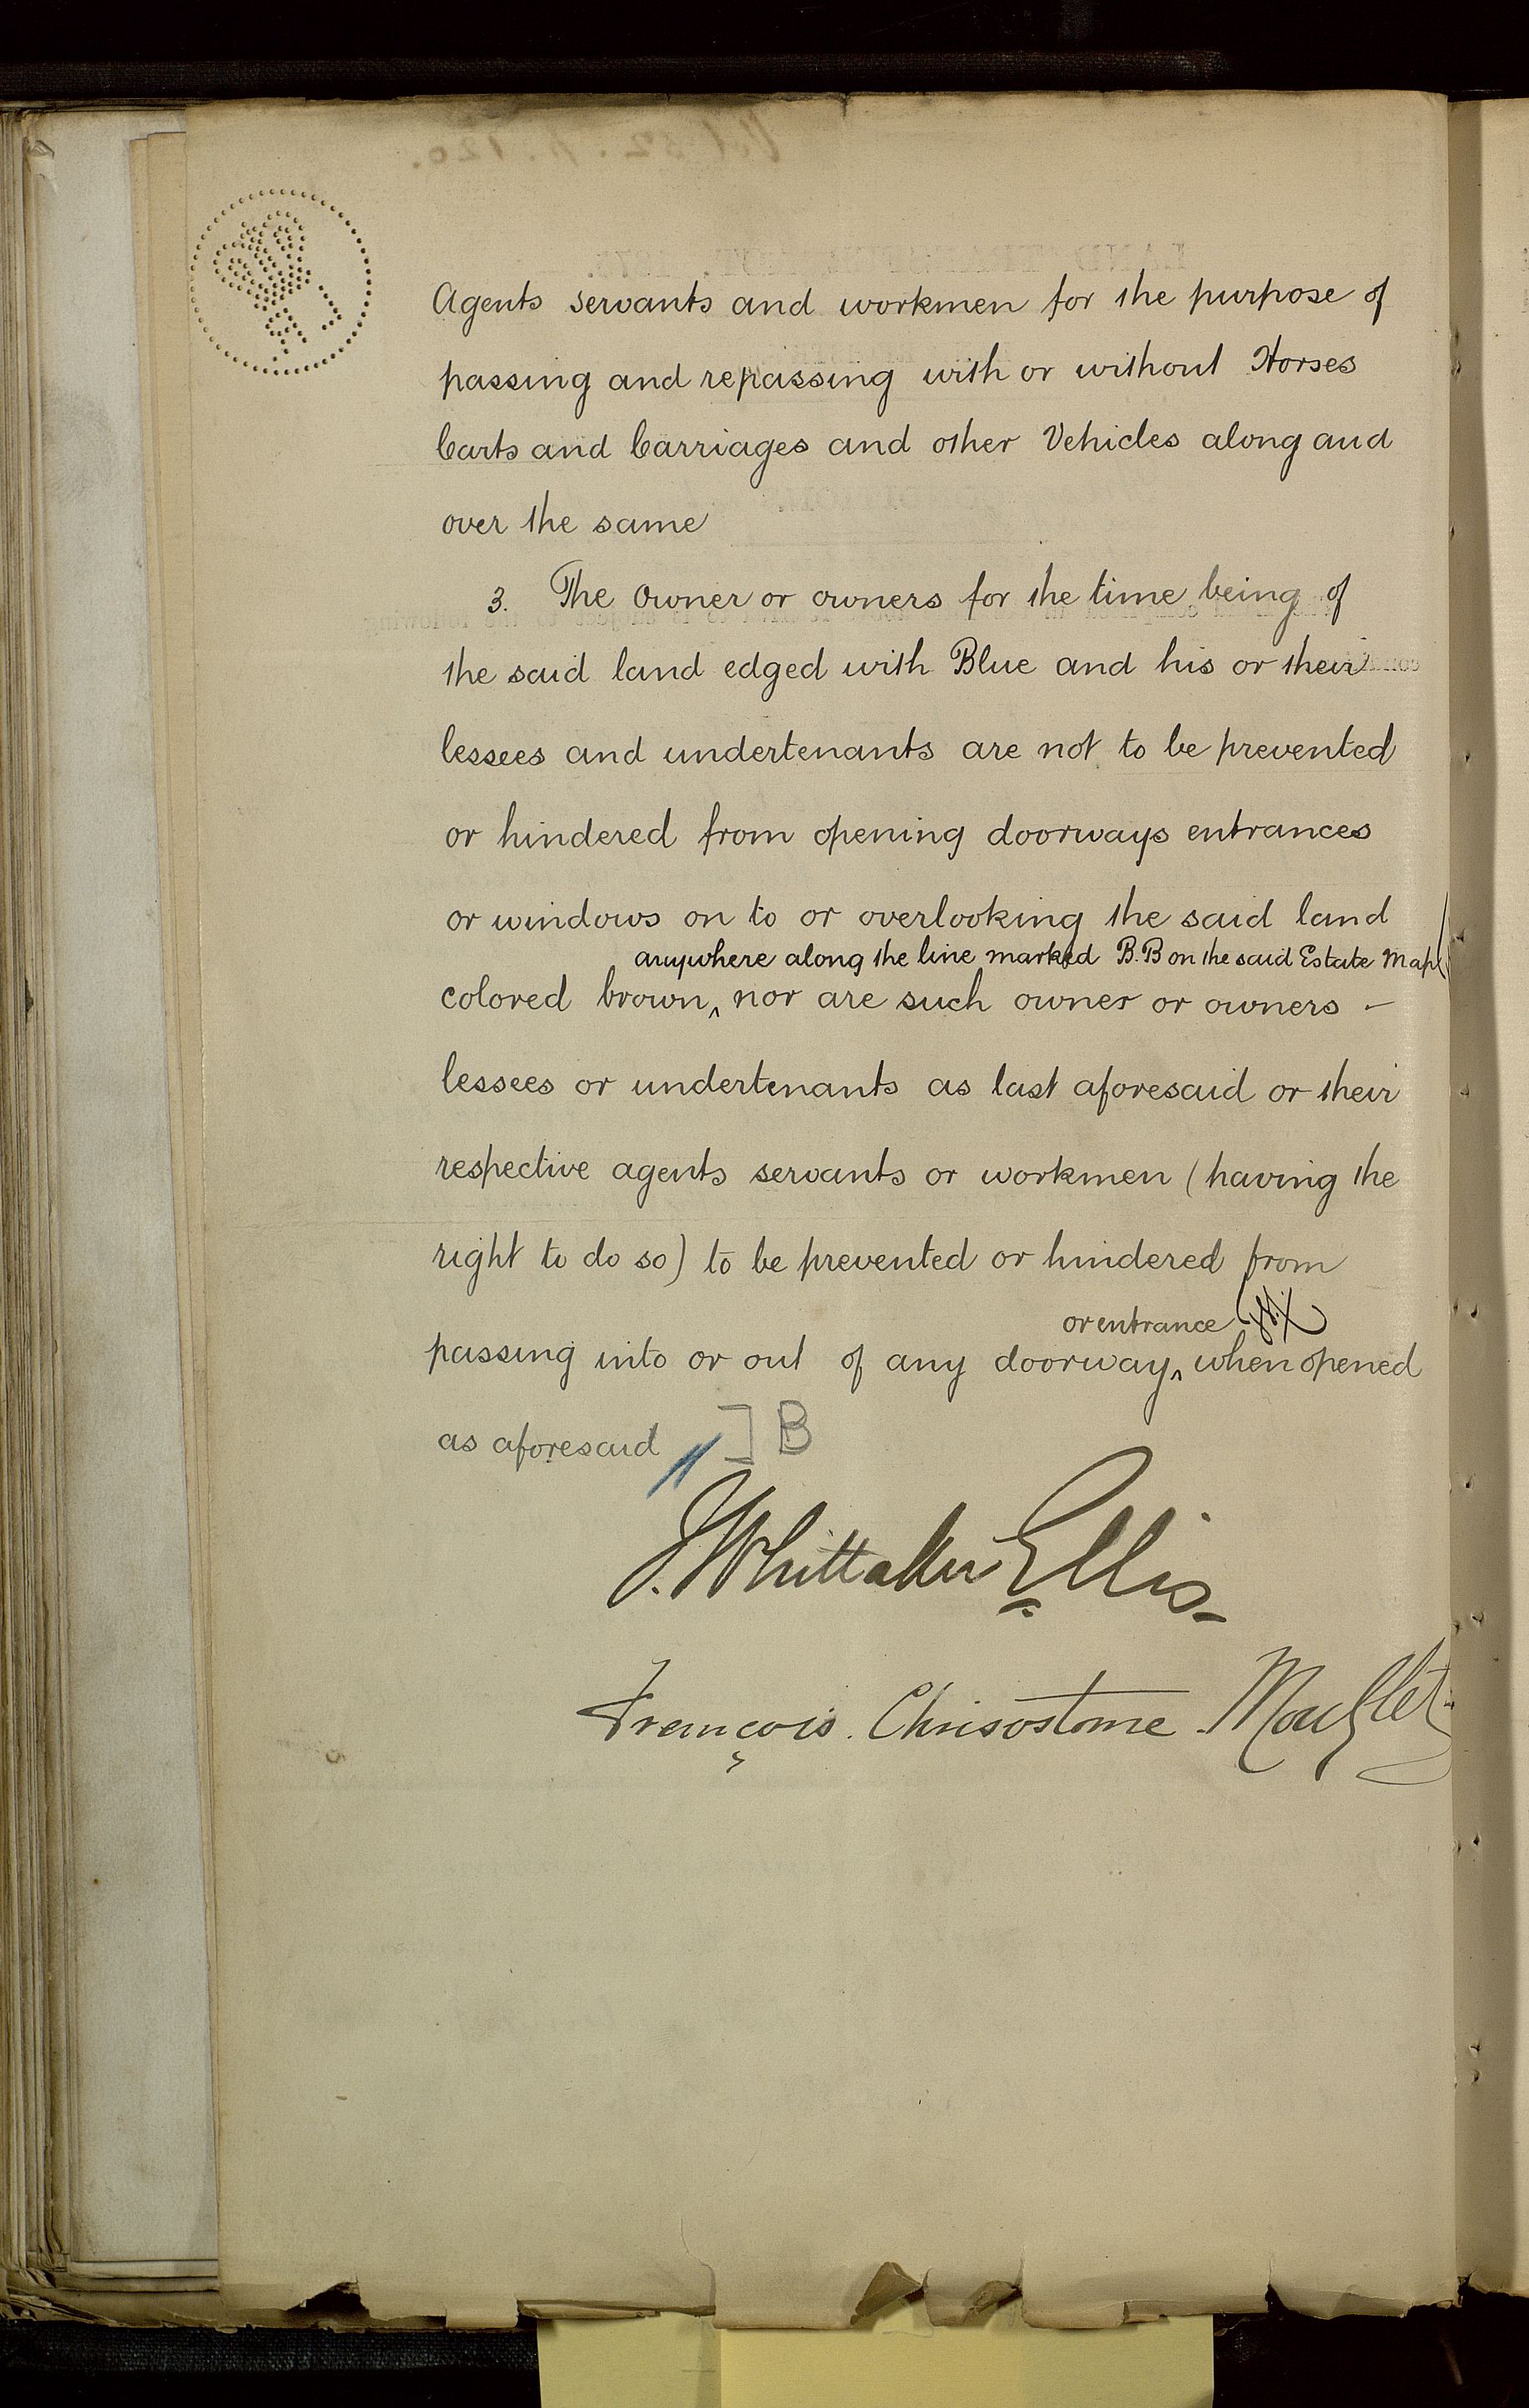 Agents servants and workmen for the purpose of
passing and repassing with or without Horses
Carts and Carriages and other Vehicles along and
over the same
3. The owner or owners for the time being of
the said land edged with Blue and his or their
lessees and undertenants are not to be prevented
or hindered from opening doorways entrances
or windows on to or overlooking the said land
anywhere along the line marked B.B on the said Estate Map
colored brown ^ nor are such owner or owners –
lessees or undertenants as last aforesaid or their
respective agents servants or workmen (having the
right to do so) to be prevented or hindered from
or entrance
passing into or out of any doorway ^ when opened
as aforesaid ] B
J. Whittaker Ellis
François Chrisostome